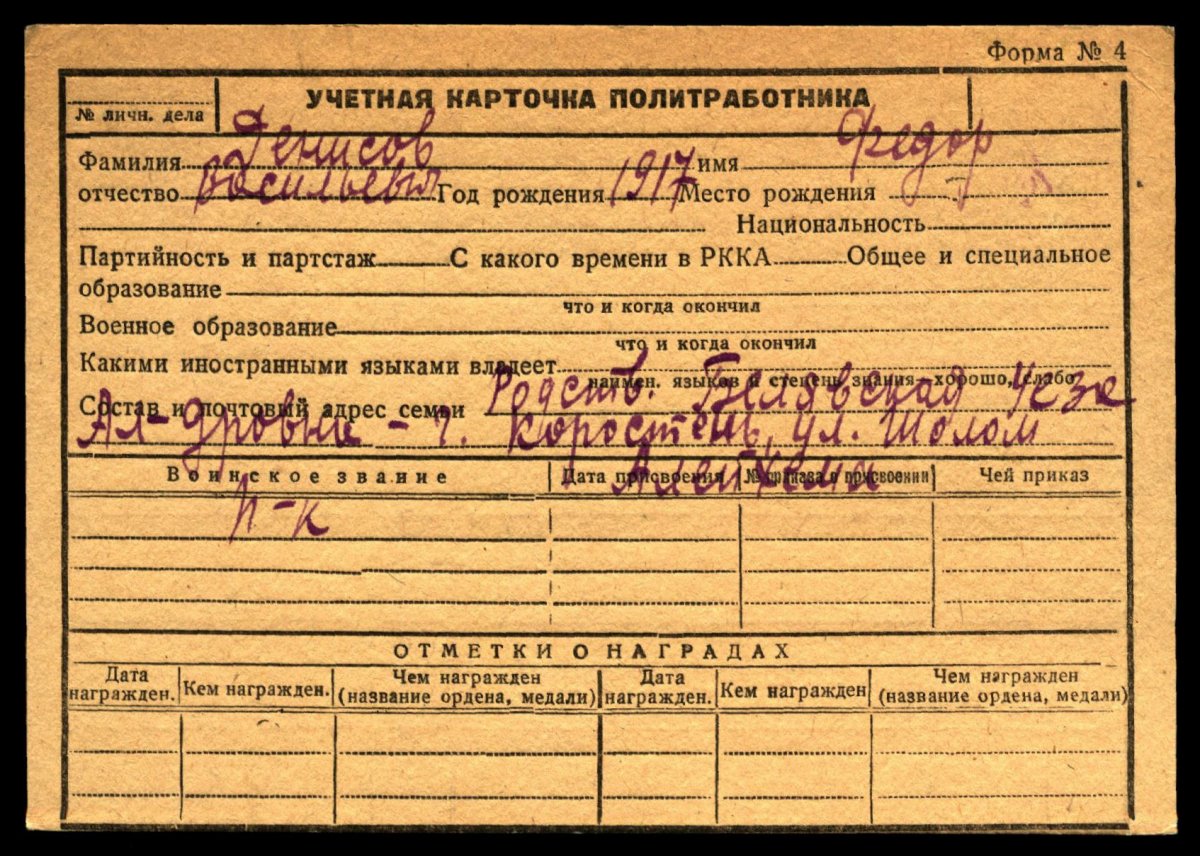 Форма № 4
УЧЕТНАЯ КАРТОЧКА ПОЛИТРАБОТНИКА
№ личн. дела
Фамилия Денисов имя Федор
отчество Васильевич Год рождения 1917 Место рождения
Национальность
Партийность и партстаж С какого времени в РККА Общее и специальное
образование
что и когда окончил
Военное образование
что и когда окончил
Какими иностранными языками владеет
наимен. языков и степень знания хорошо, слабо
Состав и почтовый адрес семьи Родств. Белявская
Ал-дровна - г. Коростень, ул. Шолом
Алейхема
Воинское звание Дата присвоения № приказа о присвоении Чей приказ
п-к
ОТМЕТКИ О НАГРАДАХ
Дата награжден. Кем награжден. Чем награжден (название ордена, медали) Дата награжден. Кем награжден Чем награжден (название ордена, медали)